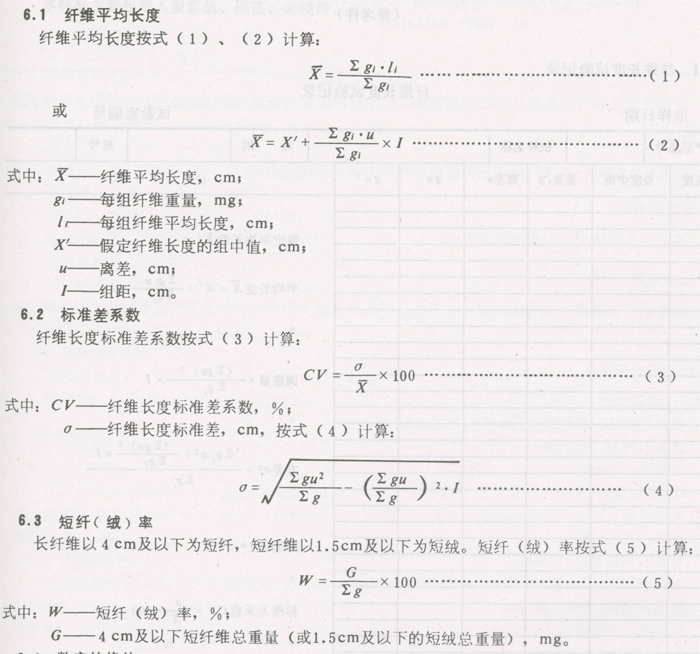 6.1 纤维平均长度
纤维平均长度按式（1）、（2）计算：
X̅ = Σgᵢ·lᵢ / Σgᵢ ……………………………（1）
或
X̅ = X′ + Σgᵢ·u / Σgᵢ × I ……………………………（2）
式中：X̅——纤维平均长度，cm；
gᵢ——每组纤维重量，mg；
lᵢ——每组纤维平均长度，cm；
X′——假定纤维长度的组中值，cm；
u——离差，cm；
I——组距，cm。
6.2 标准差系数
纤维长度标准差系数按式（3）计算：
CV = σ / X̅ × 100 ……………………………（3）
式中：CV——纤维长度标准差系数，%；
σ——纤维长度标准差，cm，按式（4）计算：
σ = √( Σgu² / Σg − ( Σgu / Σg )² · I ……………………（4）
6.3 短纤（绒）率
长纤维以4cm及以下为短纤，短纤维以1.5cm及以下为短绒。短纤（绒）率按式（5）计算：
W = G / Σg × 100 ……………………………（5）
式中：W——短纤（绒）率，%；
G——4cm及以下短纤维总重量（或1.5cm及以下的短绒总重量），mg。